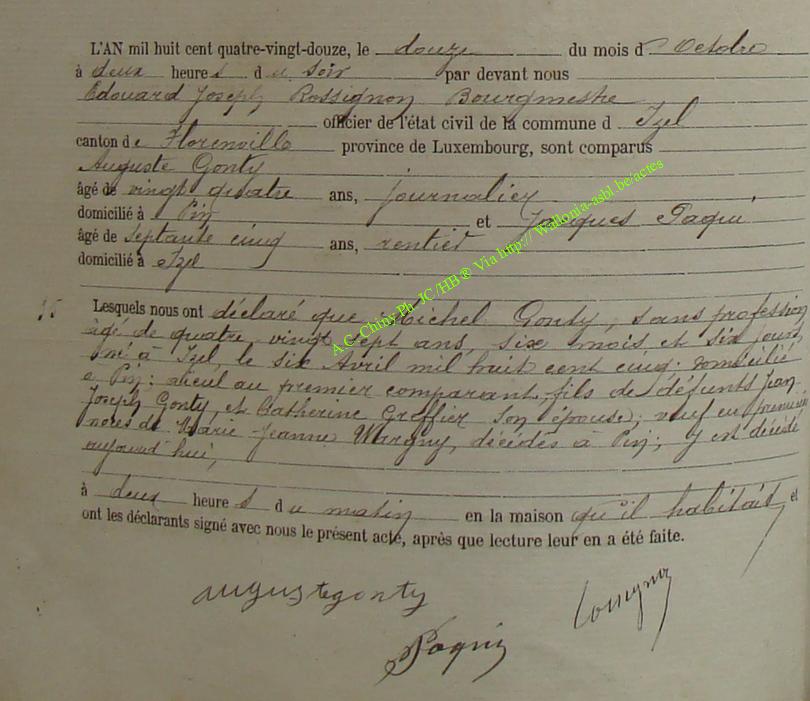 L'AN mil huit cent quatre-vingt-douze, le douze du mois d'Octobre
à deux heures du soir par devant nous
Edouard Joseph Rossignon Bourgmestre
officier de l'état civil de la commune d Izel
canton de Florenville province de Luxembourg, sont comparus
Auguste Gonty
âgé de vingt quatre ans, journalier
domicilié à Pin et Jacques Paquï
âgé de septante cinq ans, rentier
domicilié à Izel
Lesquels nous ont déclaré que Michel Gonty, sans profession
âgé de quatre vingt sept ans, six mois et six jours,
né à Izel, le six Avril mil huit cent cinq; domicilié
à Pin: aïeul au premier comparant, fils de défunts Jean
Joseph Gonty, et Catherine Greffier son épouse; veuf en premières
noces de Marie-Jeanne Wargny, décédés à Pin; y est décédé
aujourd'hui,
à deux heures du matin en la maison qu'il habitait et
ont les déclarants signé avec nous le présent acte, après que lecture leur en a été faite.
A.G-Chiny Ph JC/HB ® Via http:// Wallonia-asbl.be/actes
augustegonty